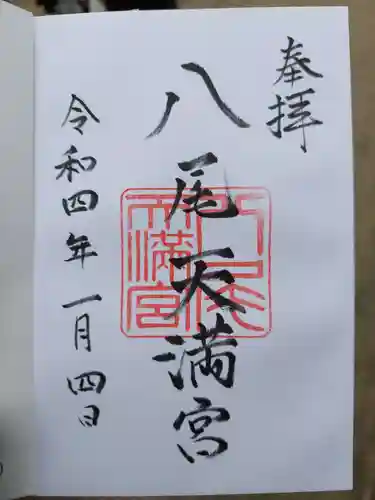 奉拝
八尾天満宮
八尾天満宮
令和四年一月四日